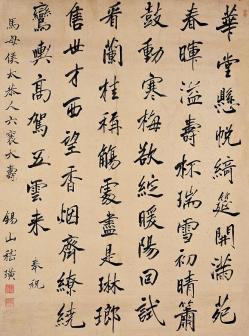 華堂懸帨綺筵開滿苑
春暉溢壽杯瑞雪初晴簫
鼓動寒梅欲綻暖陽回試
看蘭桂稱觴處盡是琳瑯
雋世才西望香烟齊繚繞
鸞輿高駕五雲来 奉祝
馬母侯太恭人六袠大壽 錫山嵇璜